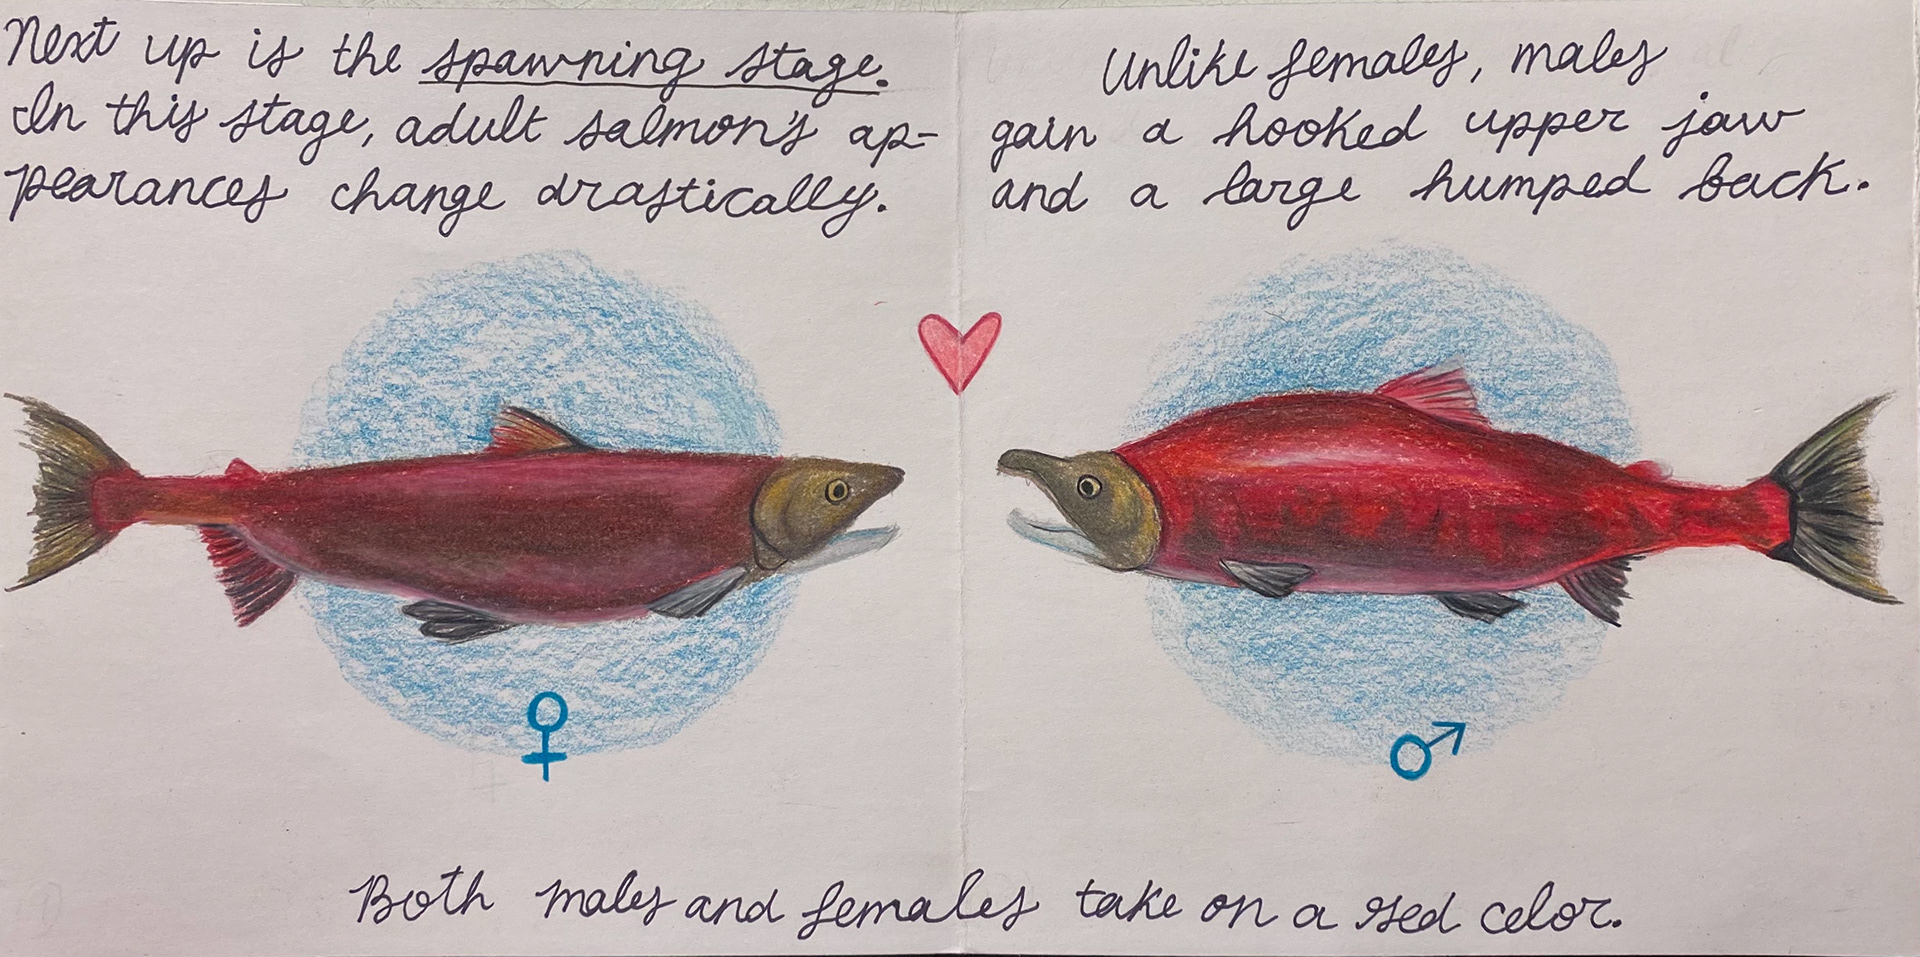 Next up is the spawning stage.
In this stage, adult salmon's ap-
pearances change drastically.
Unlike females, males
gain a hooked upper jaw
and a large humped back.
Both males and females take on a red color.